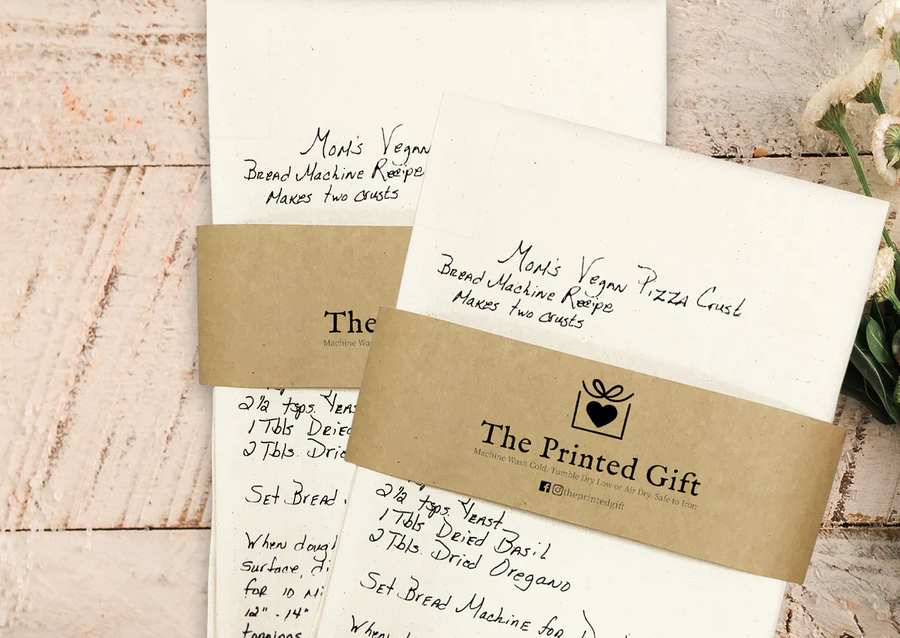 Mom's Vegan
Bread Machine Recipe
Makes two crusts
The
Machine Wa
2 1/2 tsps. Yeas
1 Tbls Dried
2 Tbls. Dric
Set Bread
When dough
Surface, di
for 10 Mi
12" - 14"
toppings
Mom's Vegan Pizza Crust
Bread Machine Recipe
Makes two crusts
The Printed Gift
Machine Wash Cold, Tumble Dry Low or Air Dry, Safe to Iron
@theprintedgift
2 1/2 tsps. Yeast
1 Tbls Dried Basil
2 Tbls. Dried Oregano
Set Bread Machine for D
When